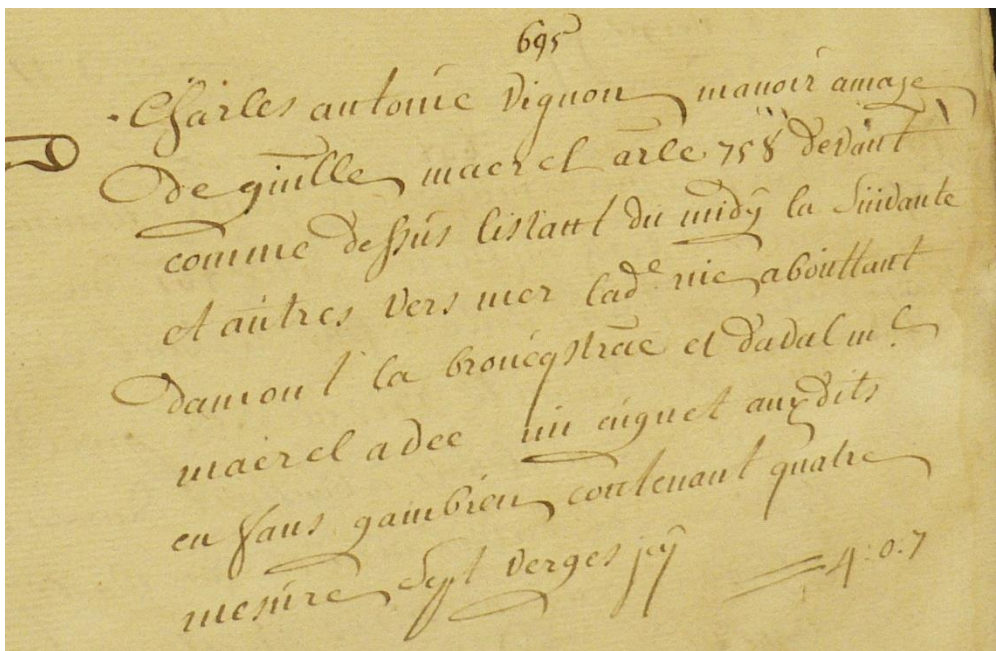 695
Charles antoine vignon manoir amaze
de guille macrel arle 758 devant
comme dessus listant du midÿ la suivante
et autres vers mer lad.e rüe abouttant
damont la brouëqstrae et daval m.e
macrel a dee un aiguet auxdits
enfans gambien contenant quatre
mesure sept verges jcÿ = 4:0:7